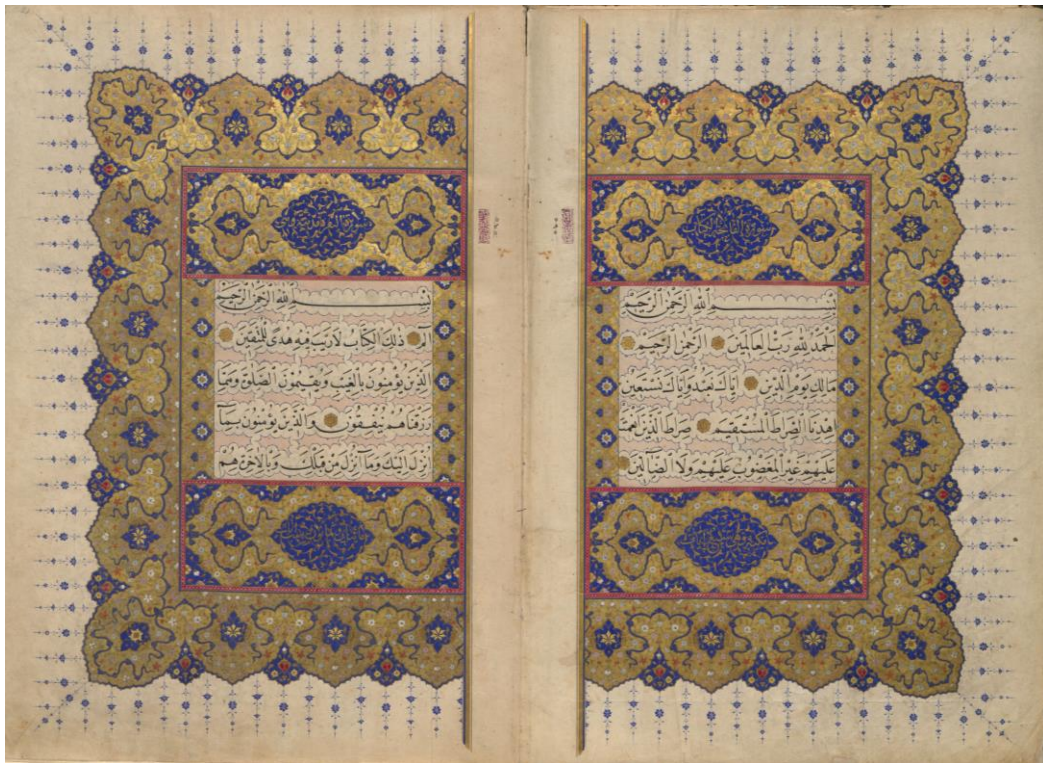 سورة الفاتحة الكتاب
بسم الله الرحمن الرحيم
الحمد لله رب العالمين الرحمن الرحيم
مالك يوم الدين اياك نعبد واياك نستعين
اهدنا الصراط المستقيم صراط الذين انعمت
عليهم غير المغضوب عليهم ولا الضآلين
سورة البقرة
بسم الله الرحمن الرحيم
الٓمٓ ذلك الكتاب لا ريب فيه هدى للمتقين
الذين يؤمنون بالغيب ويقيمون الصلوة ومما
رزقناهم ينفقون والذين يؤمنون بمآ
انزل اليك ومآ انزل من قبلك وبالاخرة هم